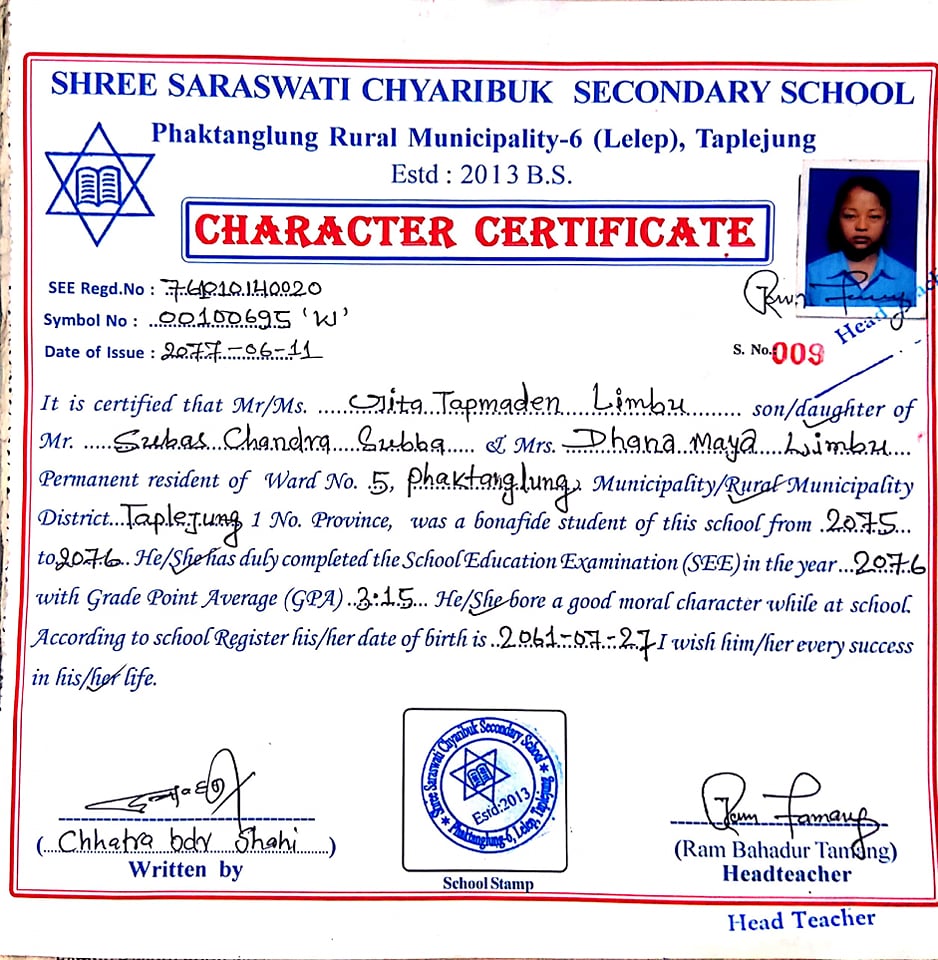 SHREE SARASWATI CHYARIBUK SECONDARY SCHOOL
Phaktanglung Rural Municipality-6 (Lelep), Taplejung
Estd : 2013 B.S.
CHARACTER CERTIFICATE
SEE Regd.No : 761010140020
Symbol No : 00100695 'W'
Date of Issue : 2077-06-11
Head
S. No. 009
It is certified that Mr/Ms. Gita Tapmaden Limbu son/daughter of
Mr. Subas Chandra Subba & Mrs. Dhana Maya Limbu
Permanent resident of Ward No. 5, Phaktanglung, Municipality/Rural Municipality
District Taplejung 1 No. Province, was a bonafide student of this school from 2075
to 2076. He/She has duly completed the School Education Examination (SEE) in the year 2076
with Grade Point Average (GPA) 3:15 He/She bore a good moral character while at school.
According to school Register his/her date of birth is 2061-07-27 I wish him/her every success
in his/her life.
Shree Saraswati Chyaribuk Secondary School
Estd:2013
Phaktanglung-6, Lelep, Taplejung
School Stamp
(Chhatra bdr Shahi)
Written by
Ram Tamang
(Ram Bahadur Tamang)
Headteacher
Head Teacher